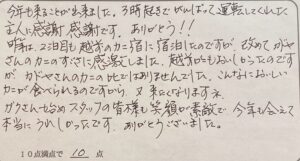 今年も来ることが出来ました。3時起きでがんばって運転してくれた
主人に感謝感謝です。ありがとう!!
昨年は、2泊目も越前のカニ宿に宿泊したのですが、改めてガヤさ
んのカニのすごさに感激しました。越前のもおいしかったのです
が、カガヤさんのカニの比ではありませんでした。こんなにおいしい
カニが食べられるのですから、又来たくなりますネ。
カウさんも始めスタッフの皆様も笑顔が素敵で今年も会えて
本当にうれしかったです。ありがとうございました。
10点満点で 10 点